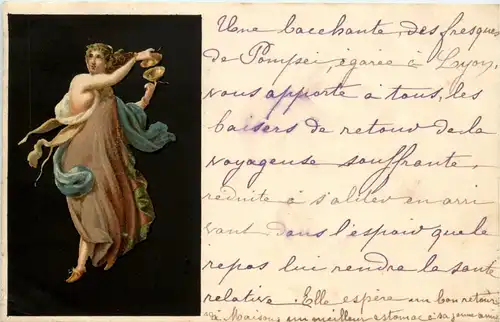 Une bacchante, des fresques
de Pompeï, égarée à Lyon,
vous apporte à tous, les
baisers de retour de la
voyageuse souffrante,
réduite à s'aliter en arri
vant dans l'espoir que le
repos lui rendra la santé
relative. Elle espère un bon retour
à Maison, un meilleur estomac à sa